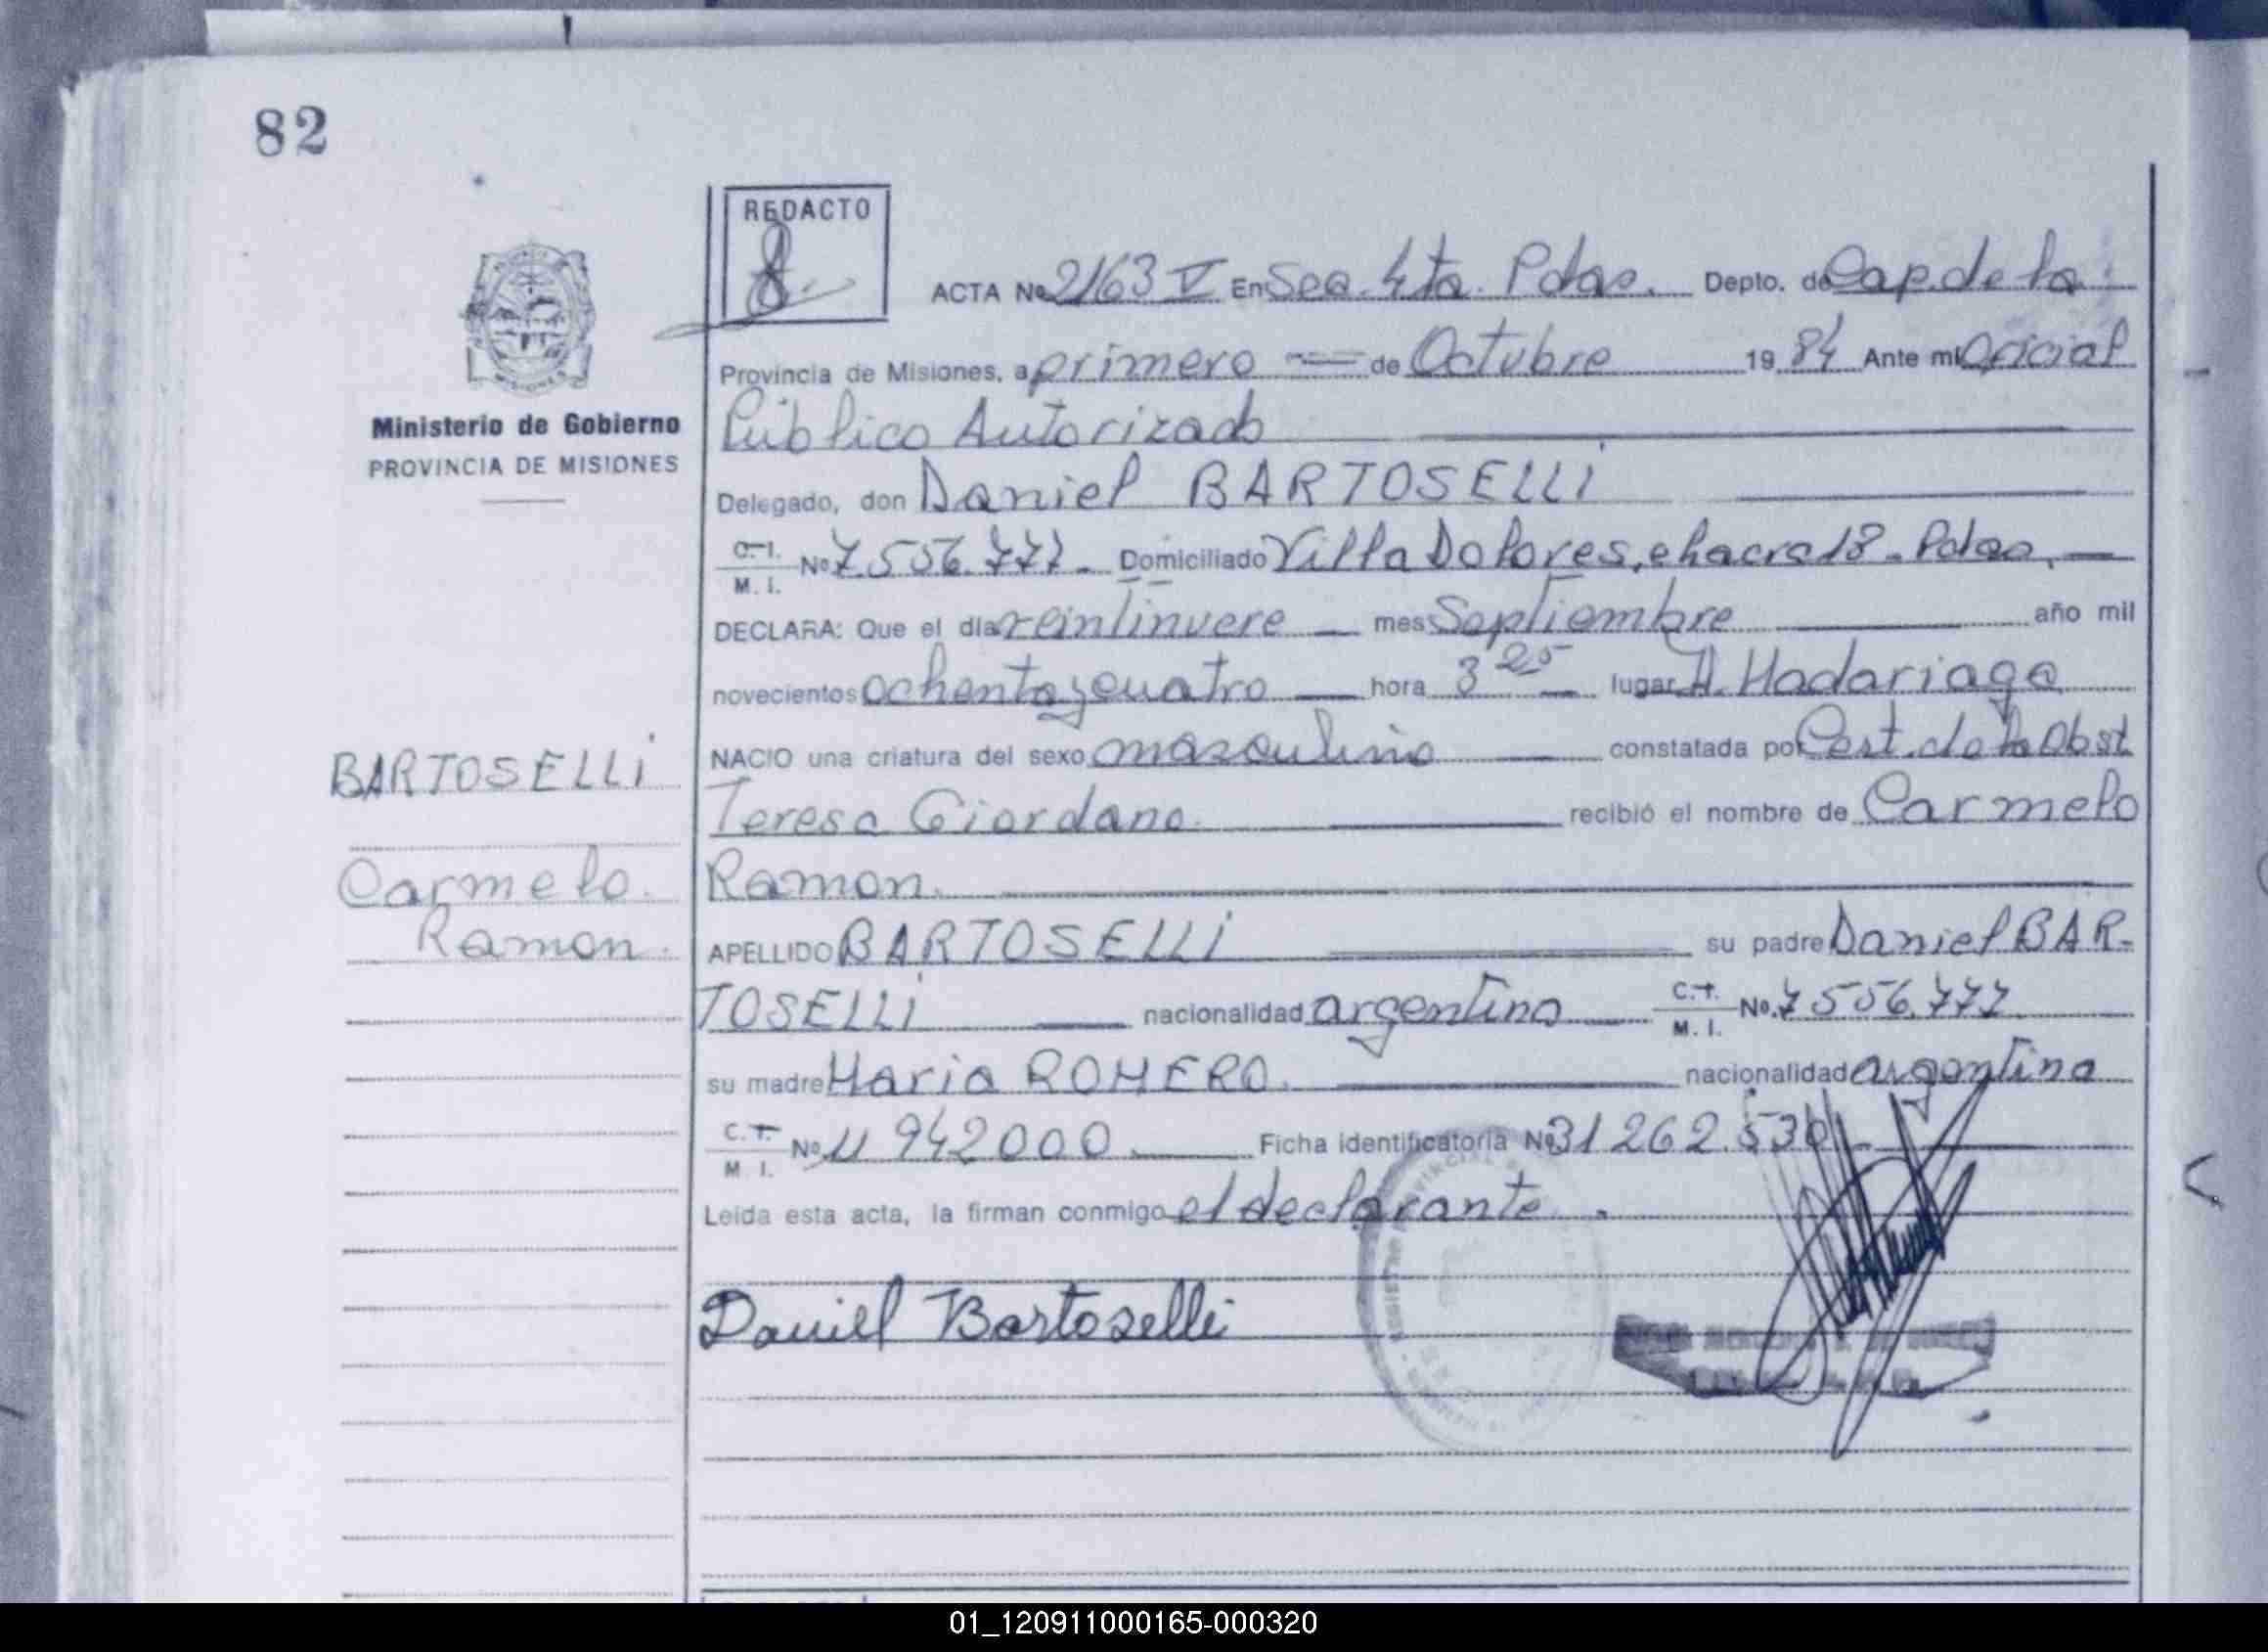 82
REDACTO
ACTA Nº 2163 V En Sec. 4ta. Pdas. Depto. de Cap. de la
Provincia de Misiones, a primero de Octubre 1984 Ante mi Oficial
Público Autorizado
Ministerio de Gobierno
PROVINCIA DE MISIONES
Delegado, don Daniel BARTOSELLI
C.I. M.I. Nº 7.556.777 Domiciliado Villa Dolores, chacra 18 - Pdas.
DECLARA: Que el día veintinueve mes Septiembre año mil
novecientos ochenta y cuatro hora 3 25 lugar H. Madariaga
NACIO una criatura del sexo masculino constatada por Cert. de la Obst
Teresa Giordano. recibió el nombre de Carmelo
Ramon.
BARTOSELLI
Carmelo.
Ramon.
APELLIDO BARTOSELLI su padre Daniel BAR-
TOSELLI nacionalidad argentino C.I. M.I. No. 7556.777
su madre Maria ROMERO. nacionalidad argentina
C.I. M.I. Nº 11 942000 Ficha identificatoria Nº 31262.530
Leída esta acta, la firman conmigo el declarante.
Daniel Bartoselli
01_120911000165-000320